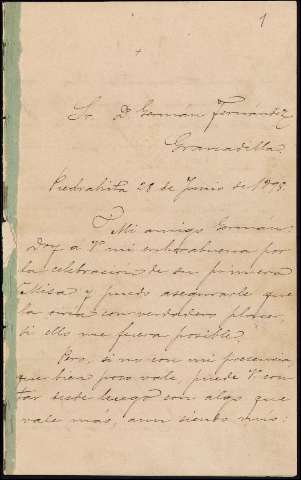 1
Sr. D. Germán Fernández
Granadilla.
Piedrahita 28 de Junio de
Mi amigo Germán:
Doy a V. mi enhorabuena por
la celebracion de su primera
Misa y puedo asegurarle que
la oiria con verdadero placer,
si ello me fuera posible.
Pero, si no con mi presencia,
que bien poco vale, puede V. con
tar desde luego con algo que
vale más, aun siendo mio: